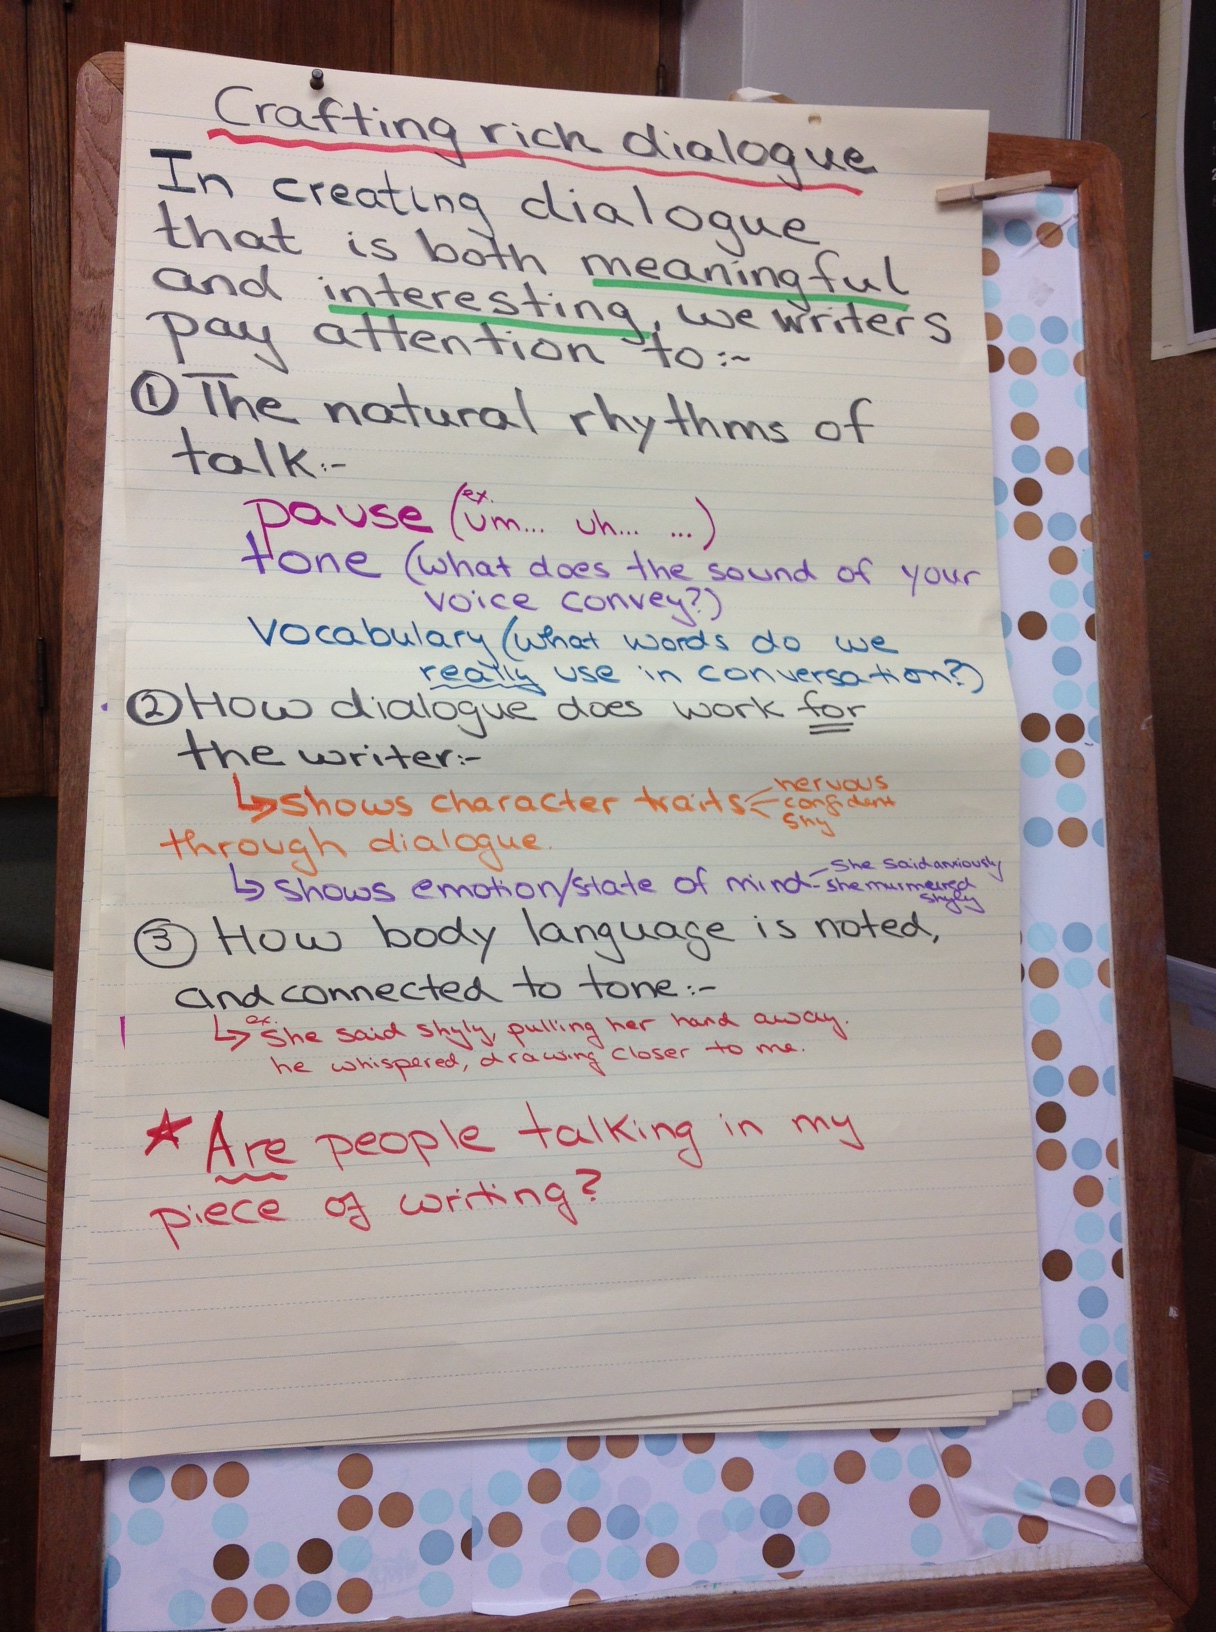 Crafting rich dialogue
In creating dialogue
that is both meaningful
and interesting, we writers
pay attention to:~
① The natural rhythms of
talk:-
pause (ex. um... uh... ...)
tone (what does the sound of your
voice convey?)
Vocabulary (what words do we
really use in conversation?)
② How dialogue does work for
the writer:-
↳ shows character traits nervous
confident
shy
through dialogue.
↳ shows emotion/state of mind - she said anxiously
- she murmured
shyly
③ How body language is noted,
and connected to tone:-
↳ ex. She said shyly, pulling her hand away.
he whispered, drawing closer to me.
★ Are people talking in my
piece of writing?